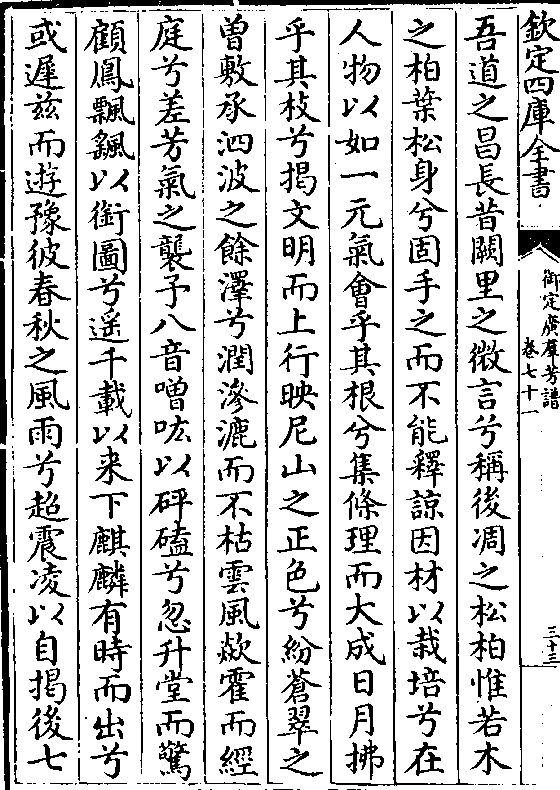 欽定四庫全書
御定廣羣芳譜
卷七十一
三十三
吾道之昌長昔闕里之微言兮稱後凋之松柏惟若木
之柏葉松身兮固手之而不能釋諒因材以栽培兮在
人物以如一元氣會乎其根兮集條理而大成日月拂
乎其枝兮揭文明而上行映尼山之正色兮紛蒼翠之
曽敷承泗波之餘澤兮潤滲漉而不枯雲風歘霍而經
庭兮差芳氣之襲予八音噌吰以砰磕兮忽升堂而驚
顧鳳飄颻以銜圖兮遥千載以来下麒麟有時而出兮
或遲兹而遊豫彼春秋之風雨兮超震凌以自掲後七